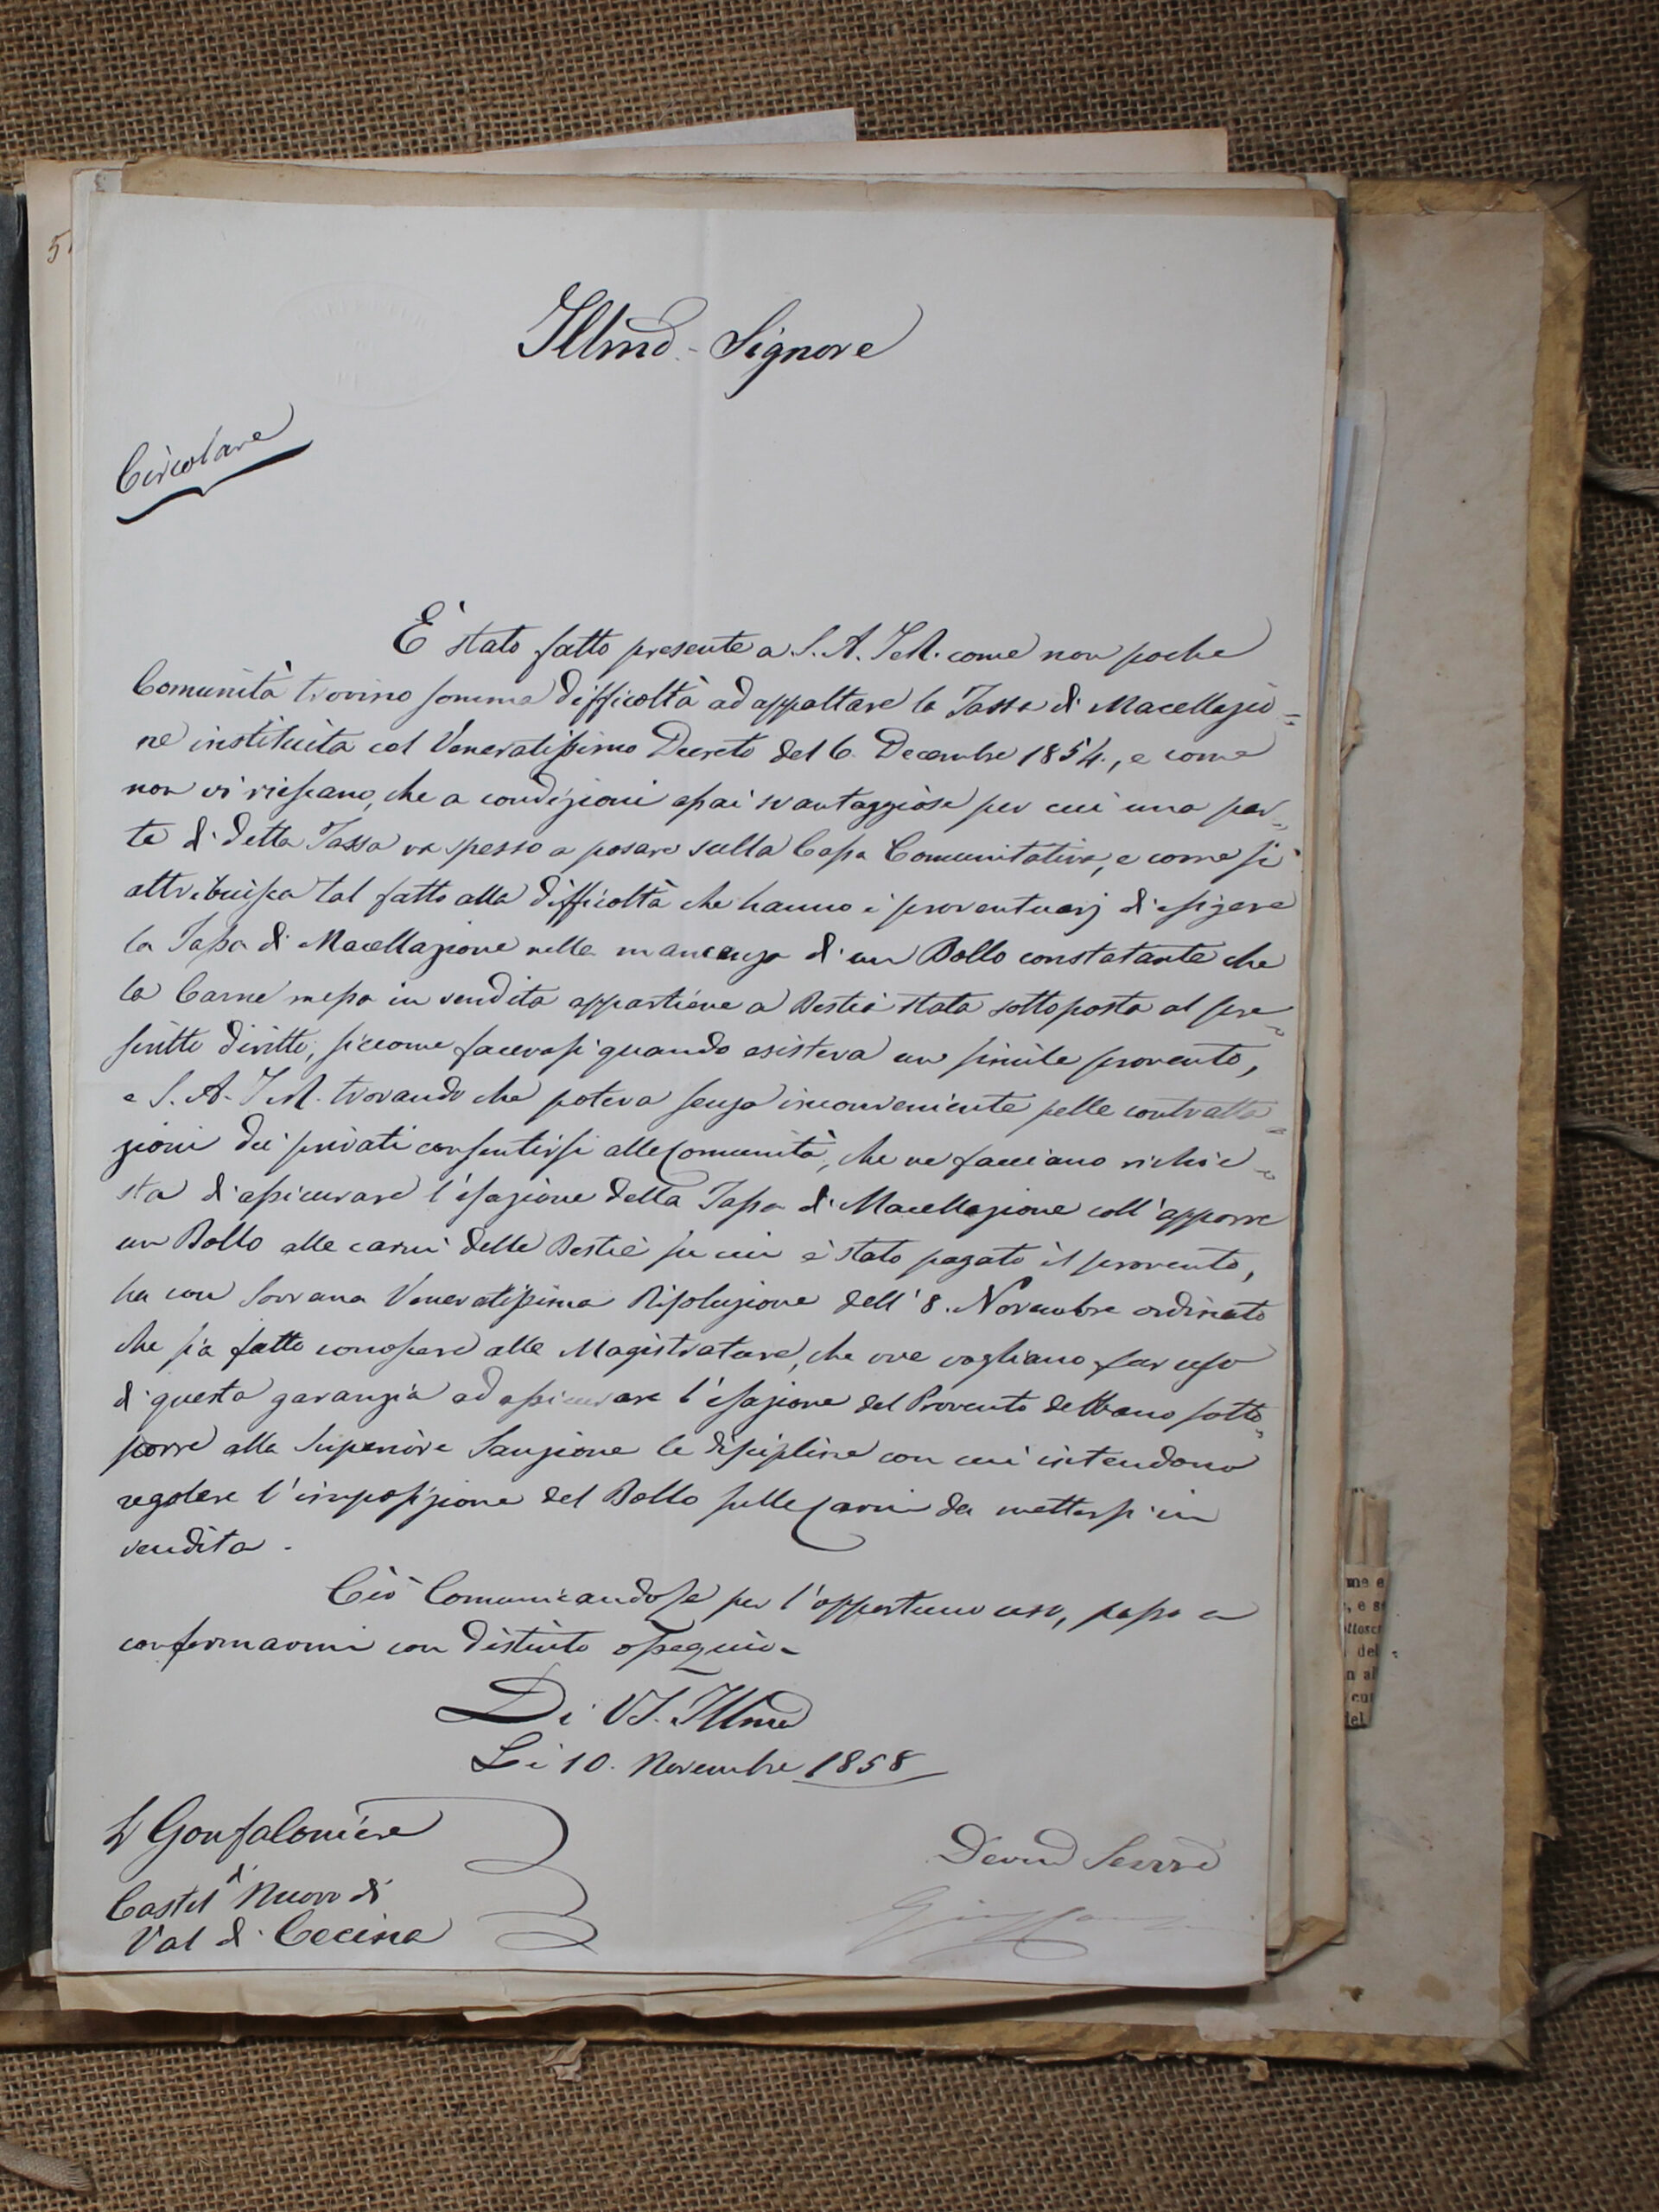 Illmo. Signore
Circolare
È stato fatto presente a S. A. I e R. come non poche
Comunità trovino somma difficoltà ad appaltare la Tassa di Macellazio=
ne instituita col Veneratissimo Decreto del 6. Decembre 1854., e come
non vi riescano, che a condizioni assai svantaggiose per cui una par=
te di detta Tassa va spesso a posare sulla Cassa Comunitativa, e come si
attribuisca tal fatto alla difficoltà che hanno i proventuarj di esigere
la Tassa di Macellazione nella mancanza di un Bollo constatante che
la Carne messa in vendita appartiene a Bestia stata sottoposta al pre=
scritto diritto, siccome facevasi quando esisteva un simile provento,
e S. A. I e R. trovando che poteva senza inconveniente nelle contratta=
zioni dei privati consentirsi alle Comunità, che ne facciano richie=
sta di assicurare l'esazione della Tassa di Macellazione coll'apporre
un Bollo alle carni delle Bestie su cui è stato pagato il provento,
ha con Sovrana Veneratissima Risoluzione dell'8. Novembre ordinato
che sia fatto conoscere alle Magistrature, che ove vogliano far uso
di questa garanzia ad assicurare l'esazione del Provento debbano sotto=
porre alla Superiore Sanzione le discipline con cui intendono
regolare l'imposizione del Bollo sulle Carni da mettersi in
vendita.
Ciò Comunicandole per l'opportuno uso, passo a
confermarmi con distinto ossequio.
Di VS. Illma
Li 10. Novembre 1858
Gonfaloniere
di
Castel Nuovo di
Val di Cecina
Devmo Servre
me e
, e s
del
n al
cui
del